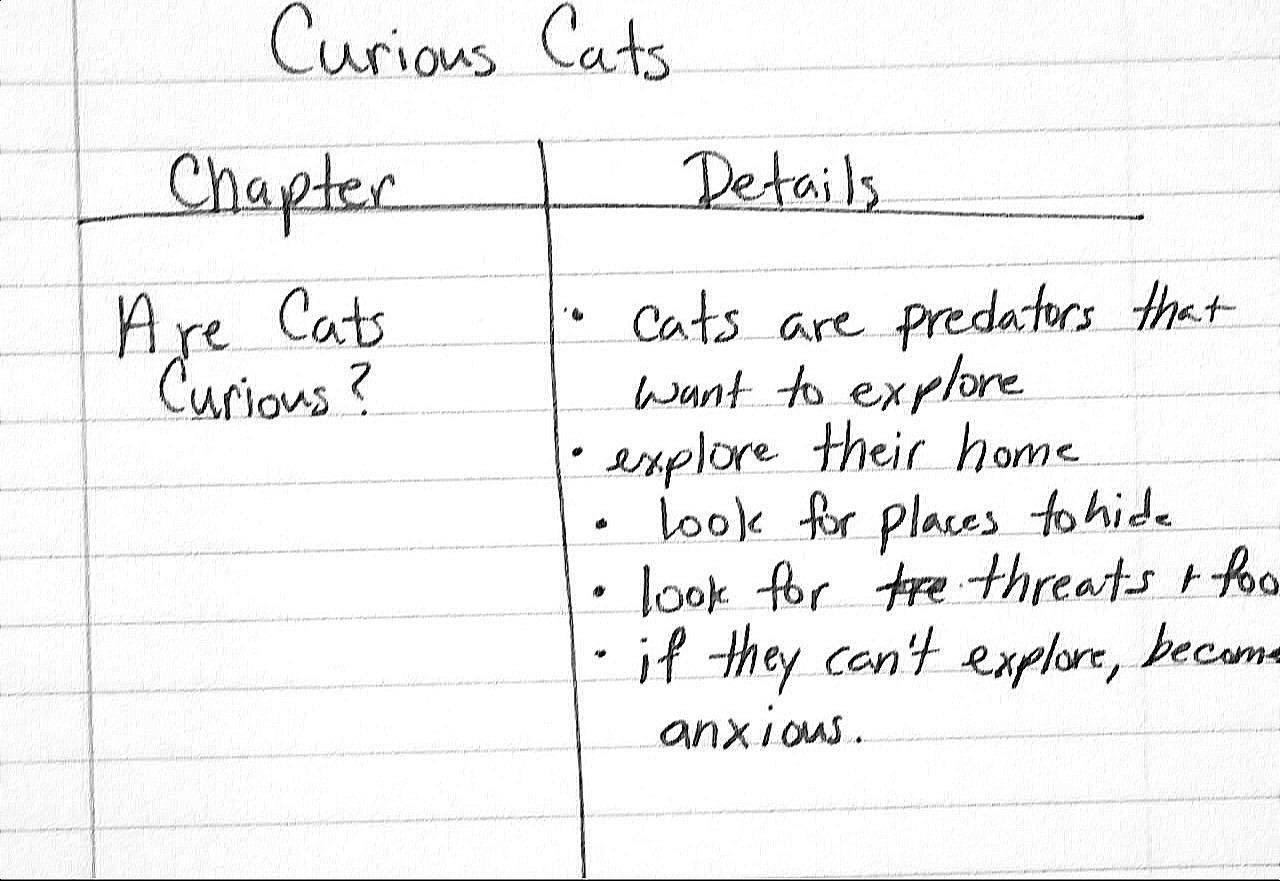 Curious Cats
Chapter Details
Are Cats
Curious?
• cats are predators that
want to explore
• explore their home
• look for places to hide
• look for tre threats + foo
• if they can't explore, become
anxious.